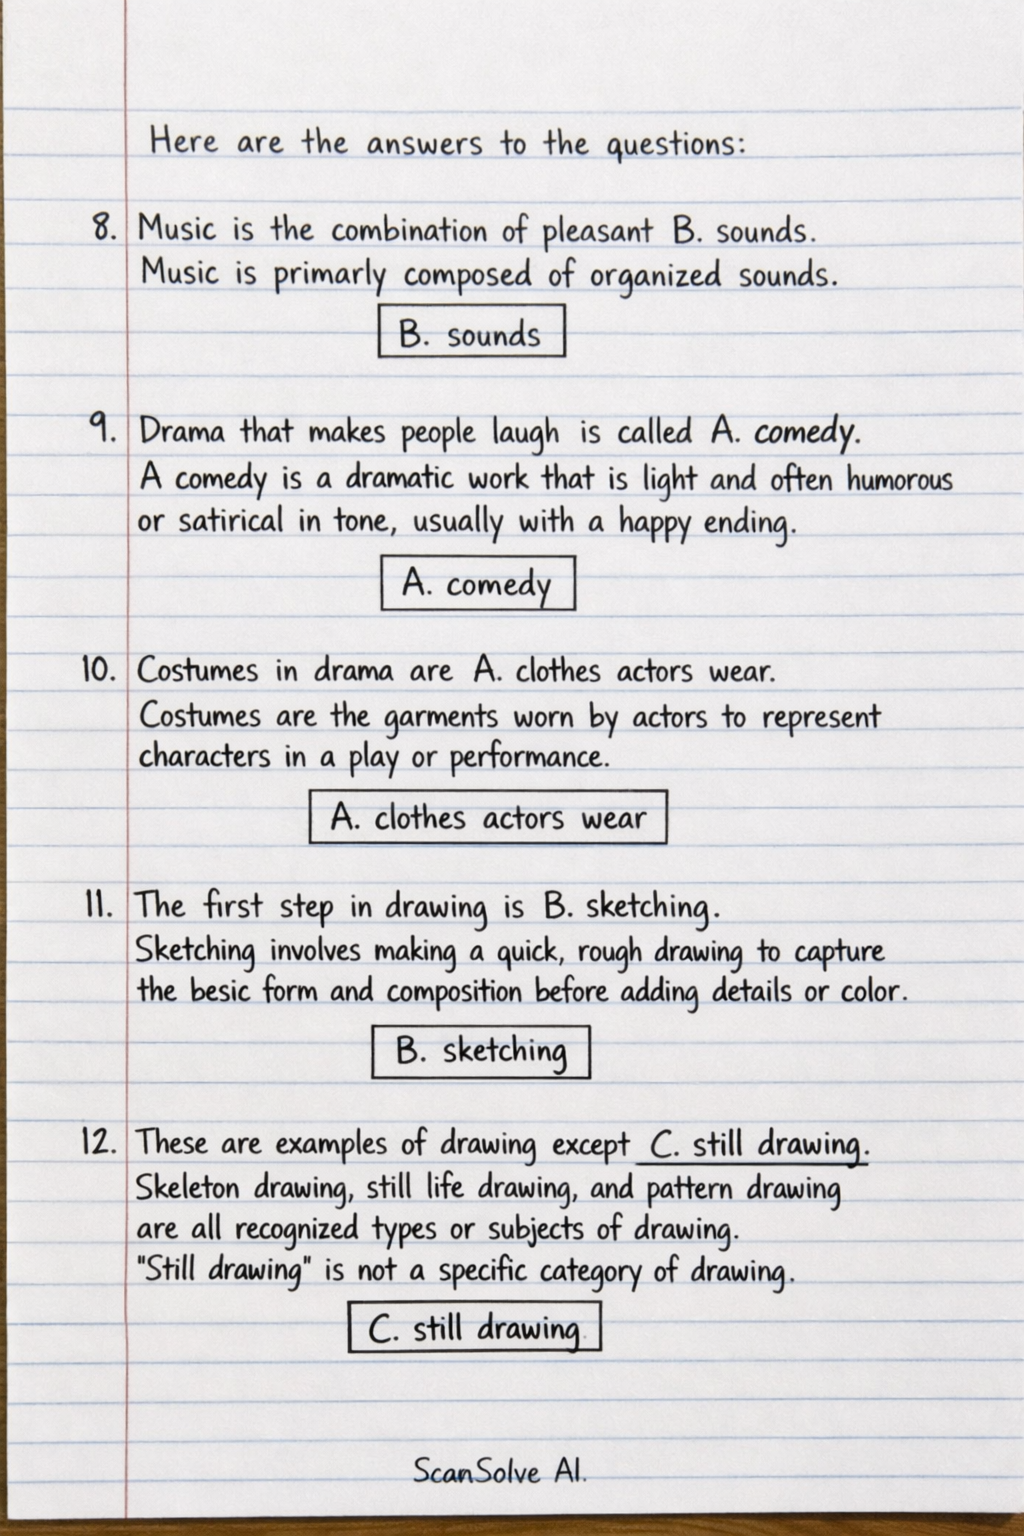 Here are the answers to the questions:
8. Music is the combination of pleasant B. sounds.
Music is primarly composed of organized sounds.
B. sounds
9. Drama that makes people laugh is called A. comedy.
A comedy is a dramatic work that is light and often humorous
or satirical in tone, usually with a happy ending.
A. comedy
10. Costumes in drama are A. clothes actors wear.
Costumes are the garments worn by actors to represent
characters in a play or performance.
A. clothes actors wear
11. The first step in drawing is B. sketching.
Sketching involves making a quick, rough drawing to capture
the besic form and composition before adding details or color.
B. sketching
12. These are examples of drawing except C. still drawing.
Skeleton drawing, still life drawing, and pattern drawing
are all recognized types or subjects of drawing.
"Still drawing" is not a specific category of drawing.
C. still drawing
ScanSolve AI.